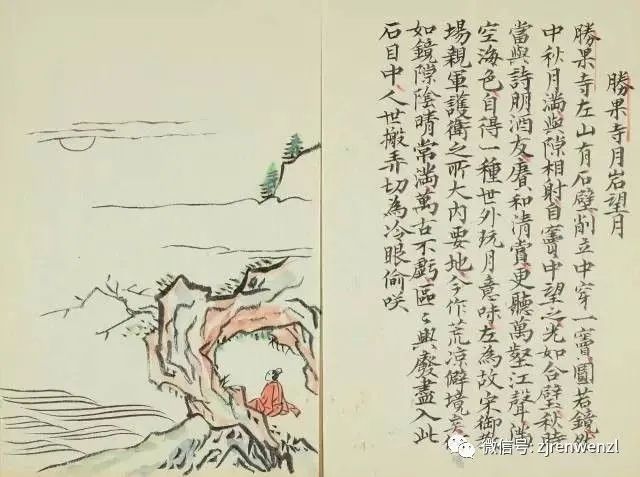 勝果寺月岩望月
勝果寺左山有石壁削立中穿一竇圓若鏡然
中秋月滿與隙相射自竇中望之光如合璧秋時
當與詩朋酒友賡和清賞更聽萬壑江聲滿
空海色自得一種世外玩月意味左為故宋御教
場親軍護衛之所大内要地今作荒涼僻境矣何
如鏡隙陰晴常滿萬古不虧區〻興廢盡入此
石目中人世搬弄切為冷眼偷咲
微信号: zjrenwenzl